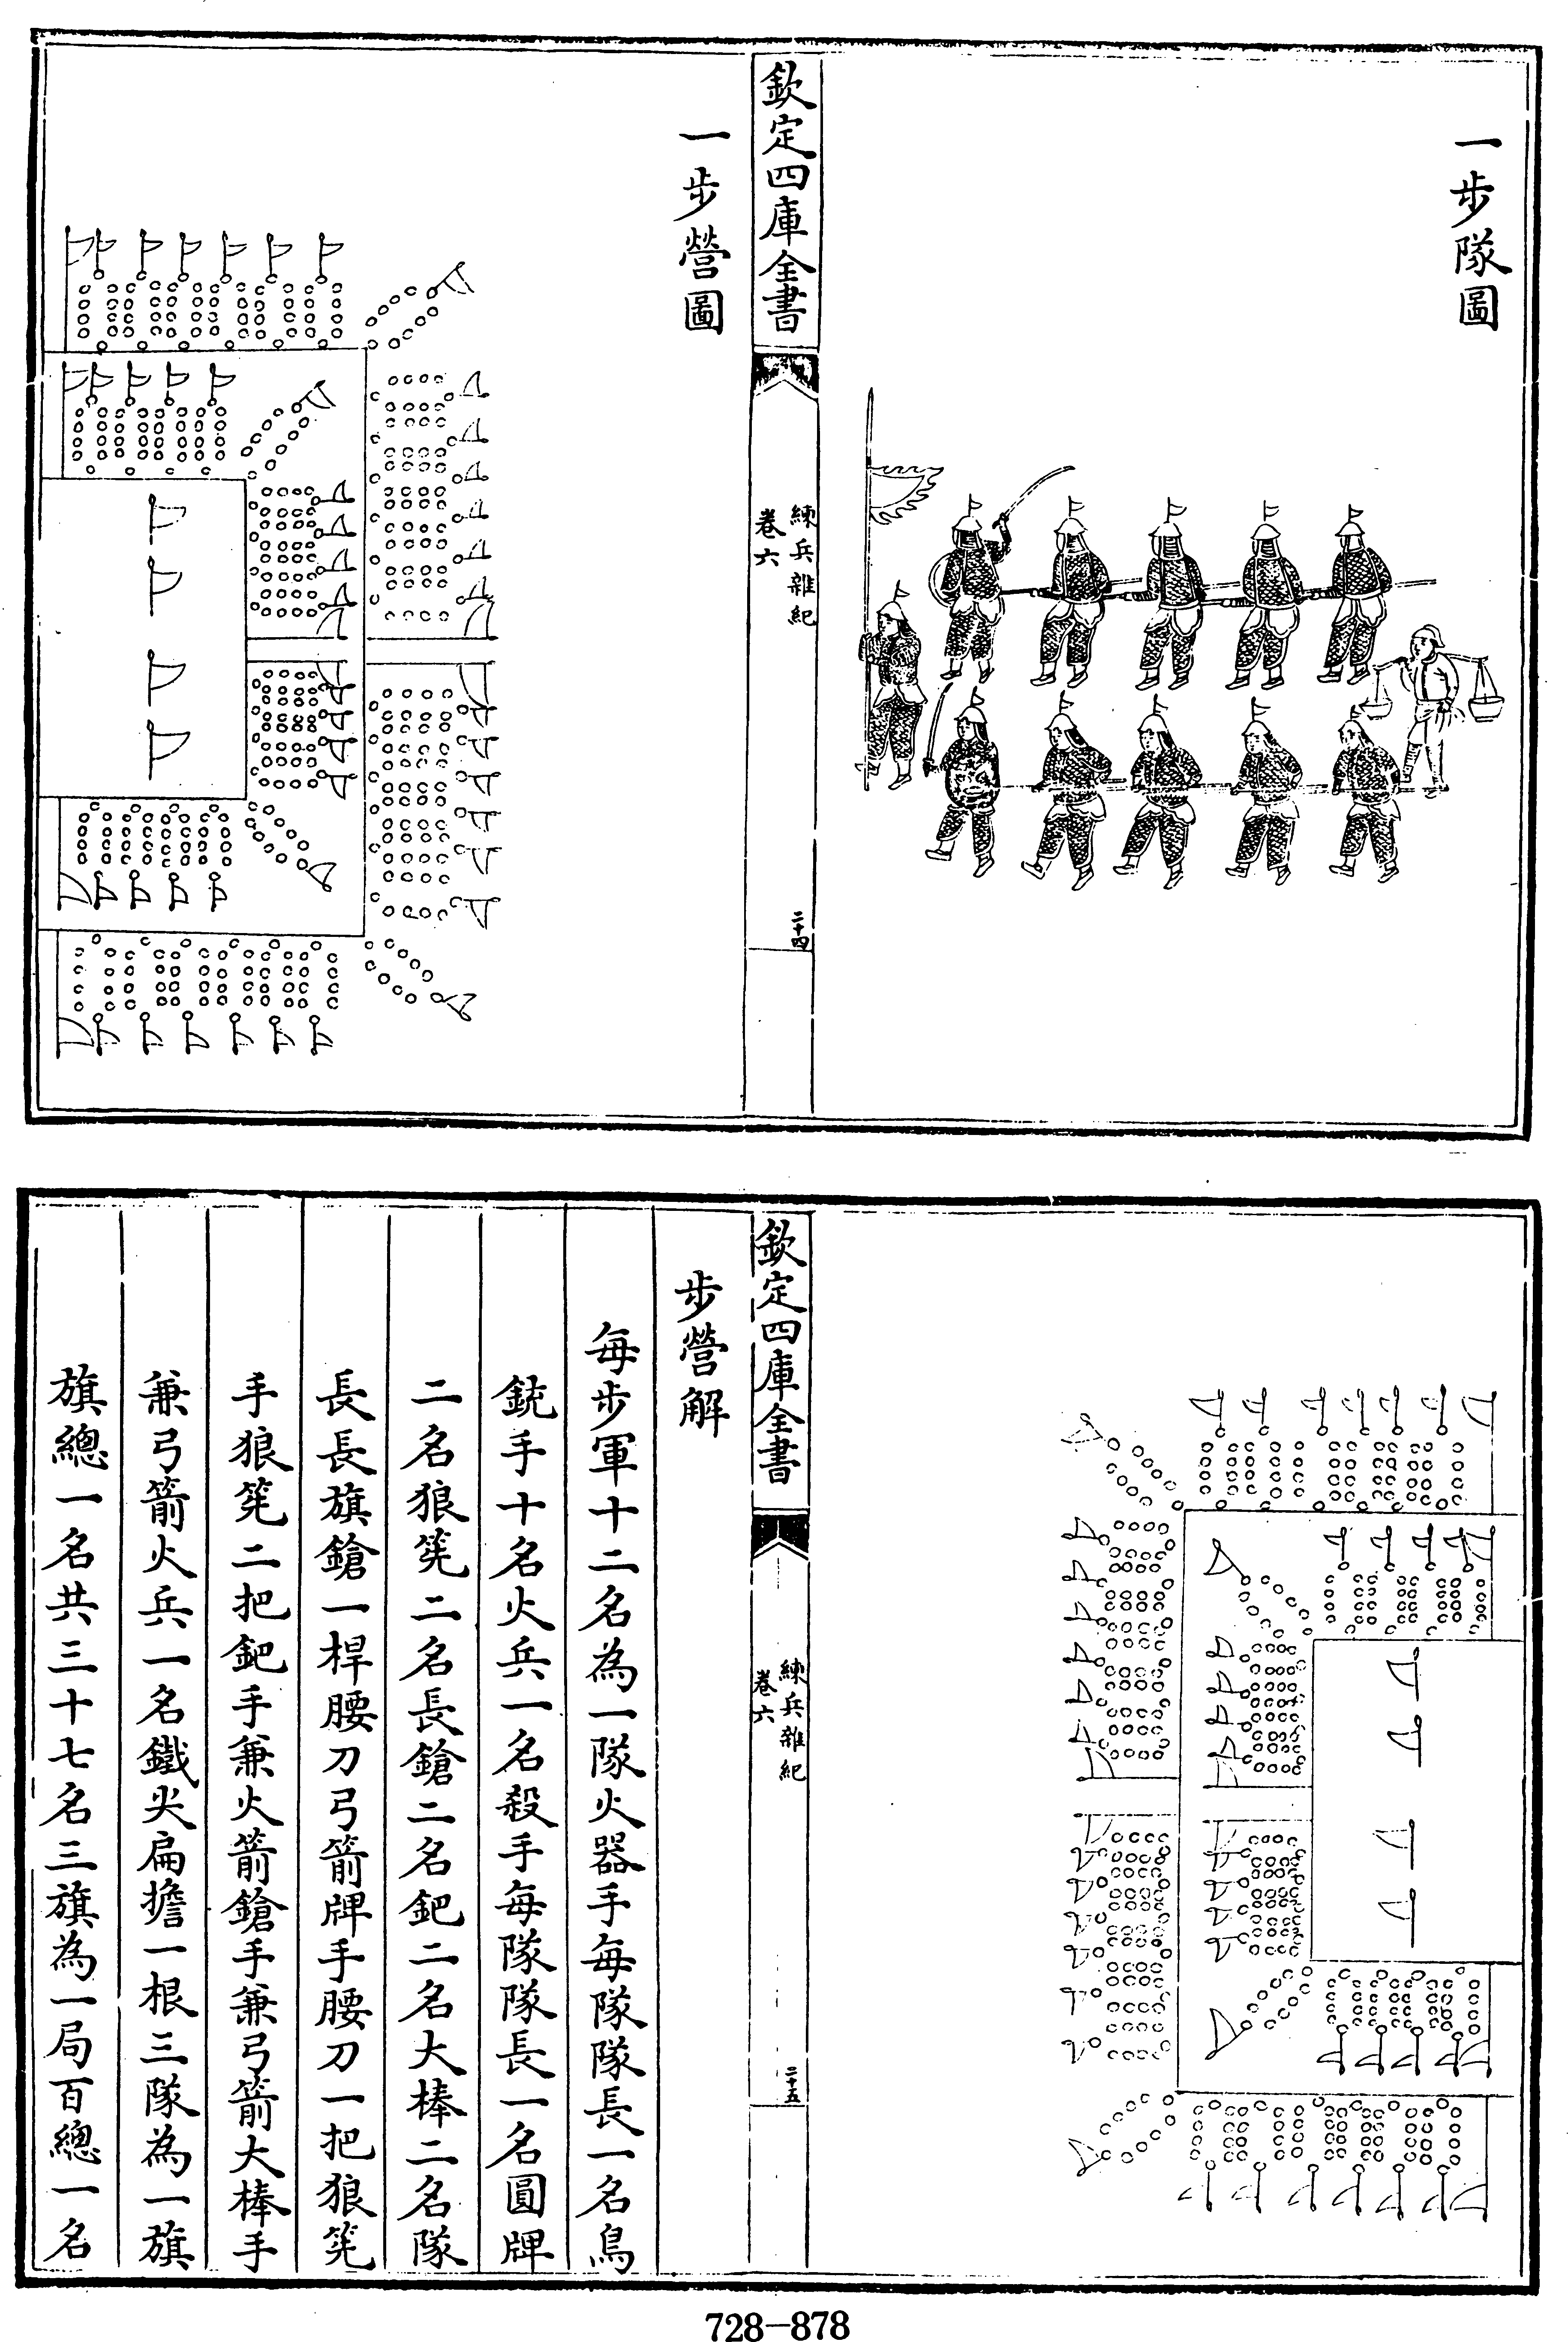 一步隊圖
欽定四庫全書
練兵雜紀
卷六
二十四
一步營圖
欽定四庫全書
練兵雜紀
卷六
二十五
步營解
每步軍十二名為一隊火器手每隊隊長一名鳥
銃手十名火兵一名殺手每隊隊長一名圓牌
二名狼筅二名長鎗二名鈀二名大棒二名隊
長長旗鎗一桿腰刀弓箭牌手腰刀一把狼筅
手狼筅二把鈀手兼火箭鎗手兼弓箭大棒手
兼弓箭火兵一名鐵尖扁擔一根三隊為一旗
旗總一名共三十七名三旗為一局百總一名
728-878